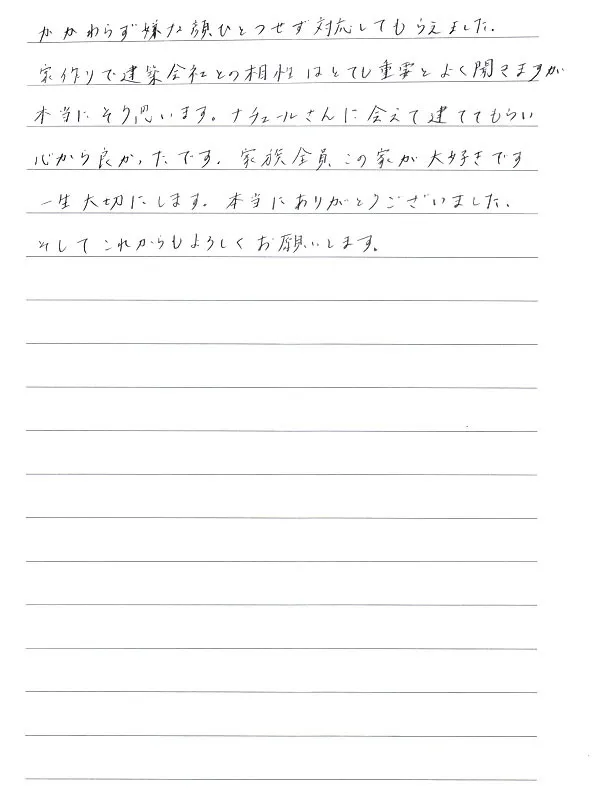 かかわらず嫌な顔ひとつせず対応してもらえました。
家作りで建築会社との相性はとても重要とよく聞きますが
本当にそう思います。ナチュールさんに会えて建ててもらい
心から良かったです。家族全員この家が大好きです
一生大切にします。本当にありがとうございました。
そしてこれからもよろしくお願いします。